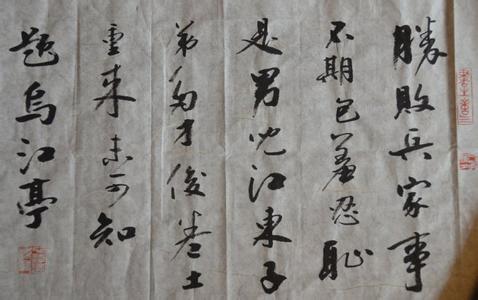 勝敗兵家事
不期包羞忍恥
是男児江東子
弟多才俊卷土
重来未可知
題烏江亭